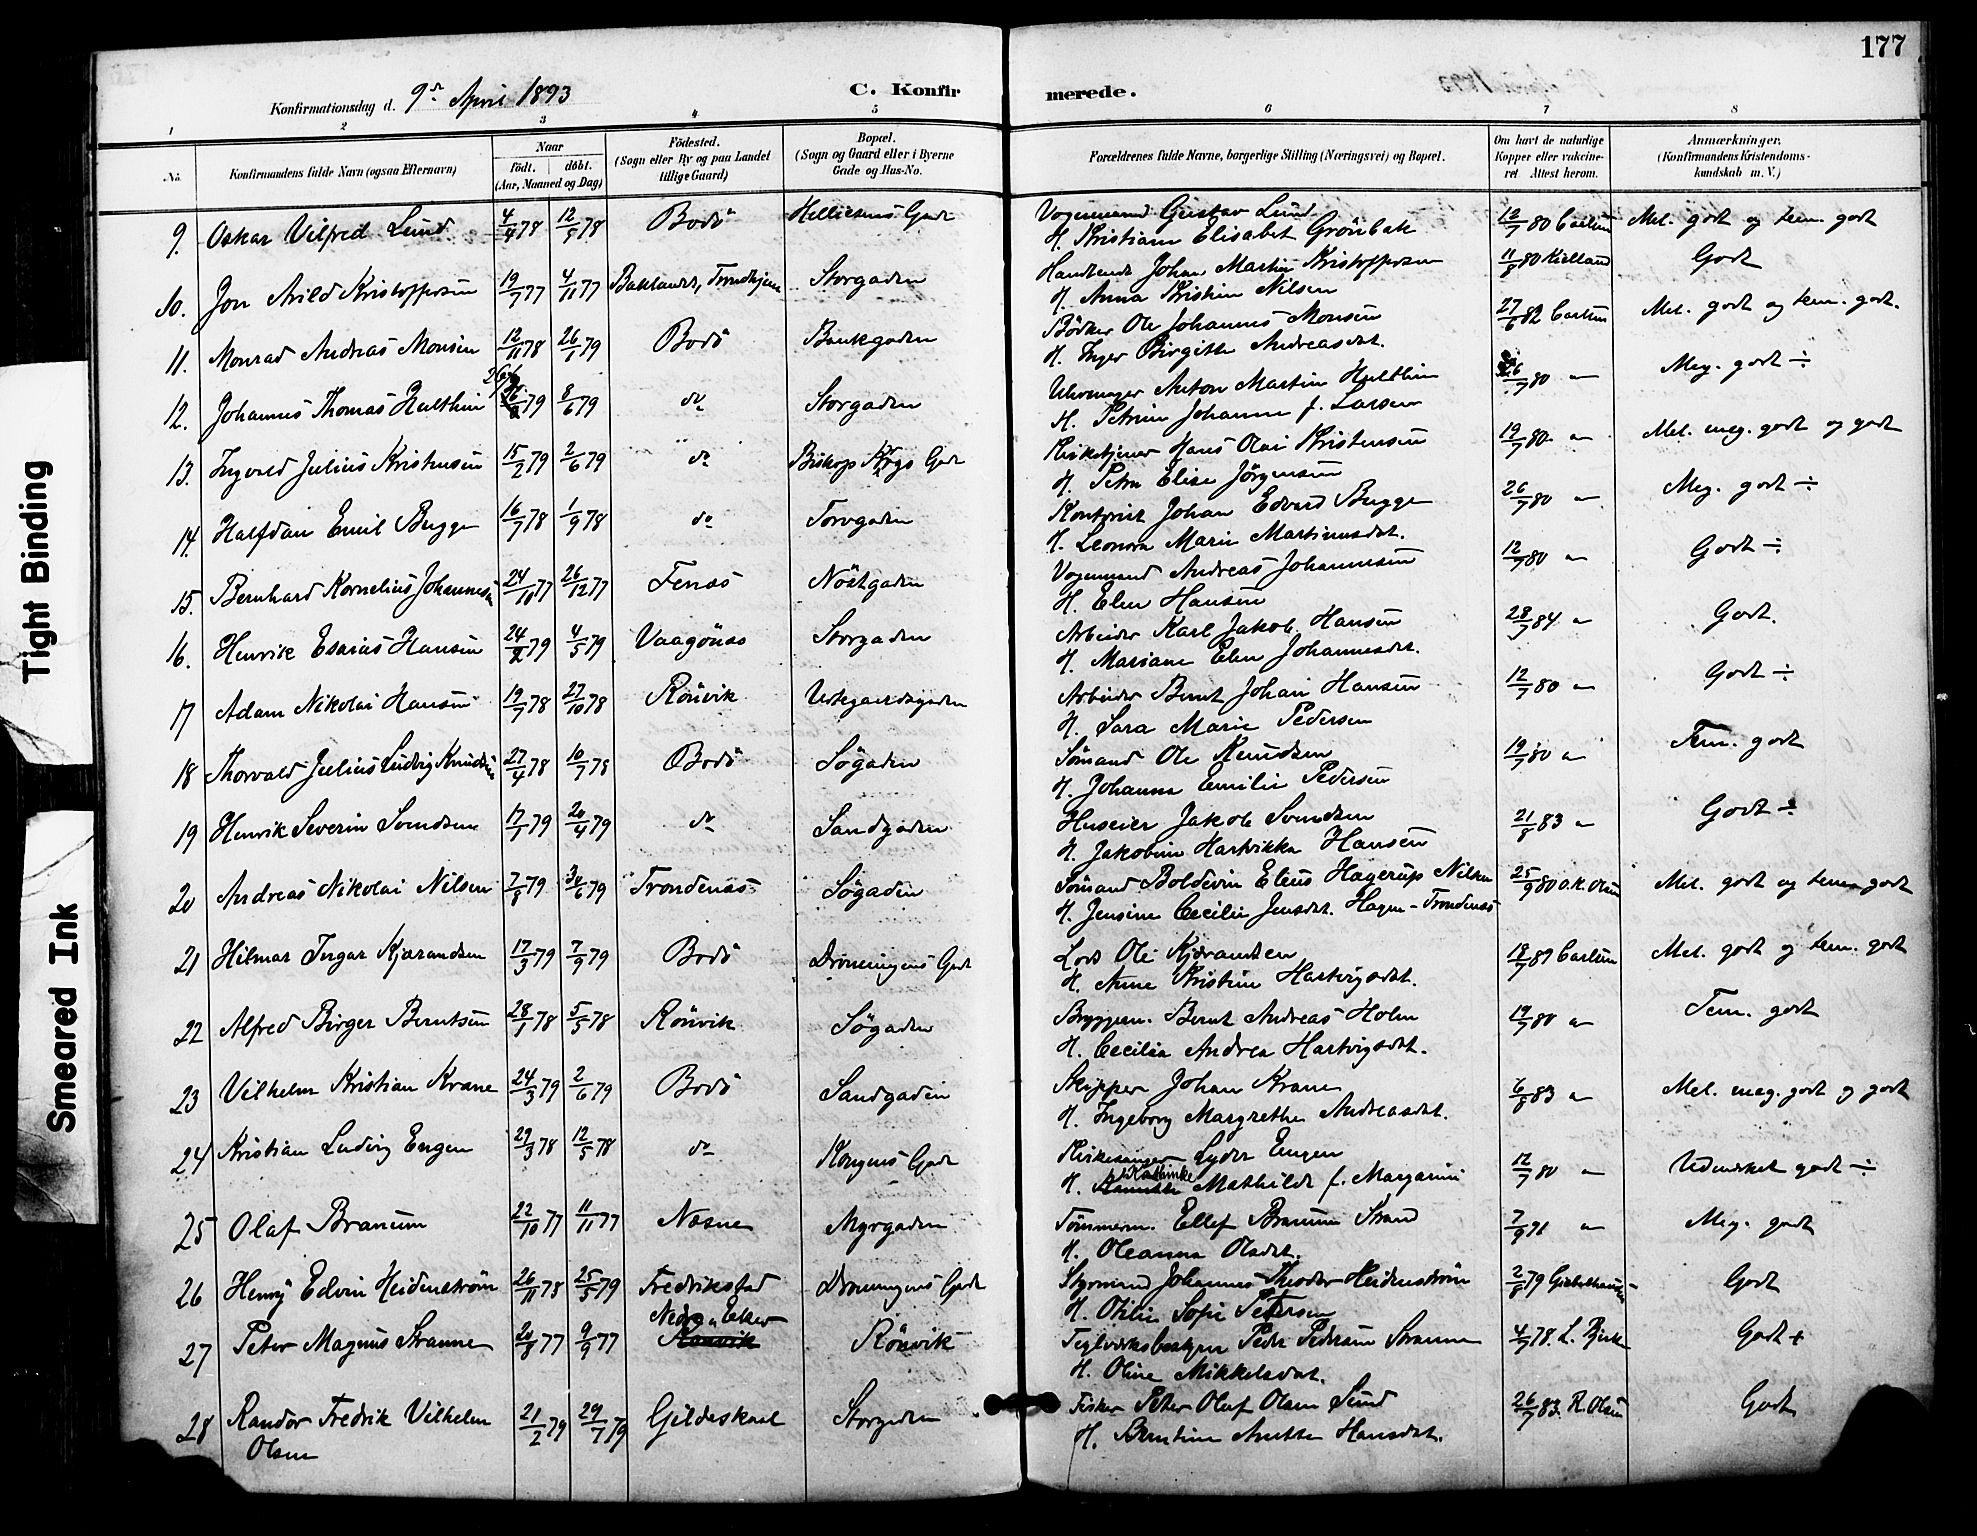 177
Konfirmationsdag d. 9de April 1893
C. Konfirmerede.
1 2 3 4 5 6 7 8
No.
Konfirmandens fulde Navn (ogsaa Efternavn)
Naar født. døbt. (Aar, Maaned og Dag)
Födested. (Sogn eller By og paa Landet tillige Gaard)
Bopæl. (Sogn og Gaard eller i Byerne Gade og Hus-No.
Forældrenes fulde Navne, borgerlige Stilling (Næringsvei) og Bopæl.
Om havt de naturlige Kopper eller vakcineret. Attest herom.
Anmærkninger. (Konfirmandens Kristendomskundskab m. V.)
9. Oskar Vilfred Lund 4/4 78 12/5 78 Bodö Gade Vognmand Gustav Lund 12/7 80 Carlsen Mel. godt og tem. godt
H. Kristiane Elisabet Grönbek
10. Jon Arild Kristoffersen 19/7 77 4/11 77 Baklandet, Trondhjem Storgaden Handlende Johan Martin Kristoffersen 11/8 80 Kielland Godt
H. Anna Kristine Nilsen
11. Monrad Andreas Monsen 12/11 78 26/1 79 Bodö Bankgaden Bödker Ole Johannes Monsen 27/6 82 Carlsen Mel. godt og tem. godt.
H. Inger Birgitte Andreasdat.
12. Johannes Thomas Hulthin 79 8/6 79 do Storgaden Anton Martin Hulthin 26/7 80 " Meg. godt ÷
H. Petrine Johanne f. Larsen
13. Ingvald Julius Kristensen 15/2 79 2/6 79 do Biskop Krogs Gade Kirketjener Hans Olai Kristensen 19/7 80 " Mel. meg. godt og godt
H. Petra Elise Jörgensen
14. Halfdan Emil Bugge 16/7 78 1/9 78 do Torvgaden Kontorist Johan Edvard Bugge 26/7 80 " Meg. godt ÷
H. Leonora Marie Martinusdat.
15. Bernhard Kornelius Johannesen 24/10 77 26/12 77 Fenes Nöstgaden Vognmand Andreas Johannesen 12/7 80 " Godt ÷
H. Elen Hansen
16. Henrik Esaias Hansen 24/2 79 4/5 79 Vaagönes Storgaden Arbeider Karl Jakob Hansen 28/7 84 " Godt.
H. Mariane Elen Johannesdat.
17 Adam Nikolai Hansen 19/7 78 27/10 78 Rönvik Arbeider Bernt Johan Hansen 12/7 80 " Godt ÷
H. Sara Marie Pedersen
18 Thorvald Julius Ludvig Knudsen 27/4 78 10/7 78 Bodö Sögaden Sömand Ole Knudsen 19/7 80 " Tem. godt
H. Johanna Emilie Pedersen
19 Henrik Severin Svendsen 17/1 79 20/4 79 do Sandgaden Huseier Jakob Svendsen 21/8 83 " Godt ÷
H. Jakobine Hartvikka Hansen
20 Andreas Nikolai Nilsen 79 30/6 79 Trondenæs Sögaden Sömand Boldevin Eteus Hagerup Nilsen 25/9 80 O.K. Olsen Mel. godt og tem. godt
H. Jensine Cecilie Jensdat. Hagen - Trondenæs
21 Hilmar Ingar Kjærandsen 17/3 79 7/9 79 Bodö Dronningens Gade Lods Ole Kjærandsen 18/7 89 Carlsen Mel. godt og tem. godt
H. Anne Kristine Hartvigsdat.
22 Alfred Birger Berntsen 28/1 78 5/5 78 Rönvik Sögaden Bryggem. Bernt Andreas Holm 19/7 80 " Tem. godt
H. Cecilia Andrea Hartvigsdat.
23 Vilhelm Kristian Krane 24/3 79 2/6 79 Bodö Sandgaden Skipper Johan Krane 6/8 83 " Mel. meg. godt og godt
H. Ingeborg Margrethe Andreasdat.
24 Kristian Ludvig Engen 29/3 78 12/5 78 do Kongens Gade Kirkesanger Lyder Engen 12/7 80 " Udmærket godt ÷
H. Kathinke Mathilde f. Margarini
25 Olaf Branum 22/10 77 11/11 77 Næsne Myrgaden Tömmerm. Ellef Branum Strand 7/9 91 " Meg. godt
H. Oleanna Olsdat.
26 Henry Edvin Heidenström 26/11 78 25/5 79 Fredrikstad Dronningens Gade Styrmand Johannes Theodor Heidenström 2/8 79 Godt
H. Otilie Sofie Petersen
27 Peter Magnus Stranne 20/8 77 9/9 77 Nedre Eker Rönvik Teglværksbestyrer Peder Pedersen Stranne 4/7 78. L. Godt +
H. Oline Mikkelsdat.
28 Randor Fredrik Vilhelm Olsen 21/2 79 29/7 79 Gildeskaal Storgaden Fisker Peter Olaf Olsen Sund 26/7 83. R. Olsen Godt
H. Berntine Anette Hansdat.
Tight Binding
Smeared Ink